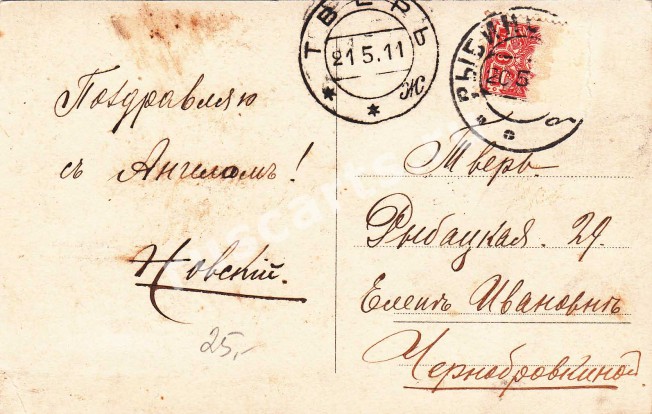 ТВЕРЬ
21 5. 11
Ж
РЫБИН
20 5
Поздравляю
съ Ангеломъ!
Новскій.
25,-
Тверь.
Рыбацкая. 29.
Еленѣ Ивановнѣ
Чернобровкиной